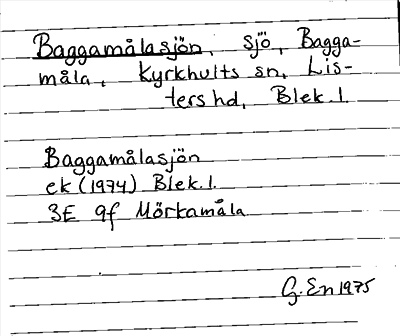 Baggamålasjön, sjö, Bagga-
måla, Kyrkhults sn, Lis-
ters hd, Blek. l.
Baggamålasjön
ek (1974) Blek. l.
3E 9f Mörkamåla
G. En 1975